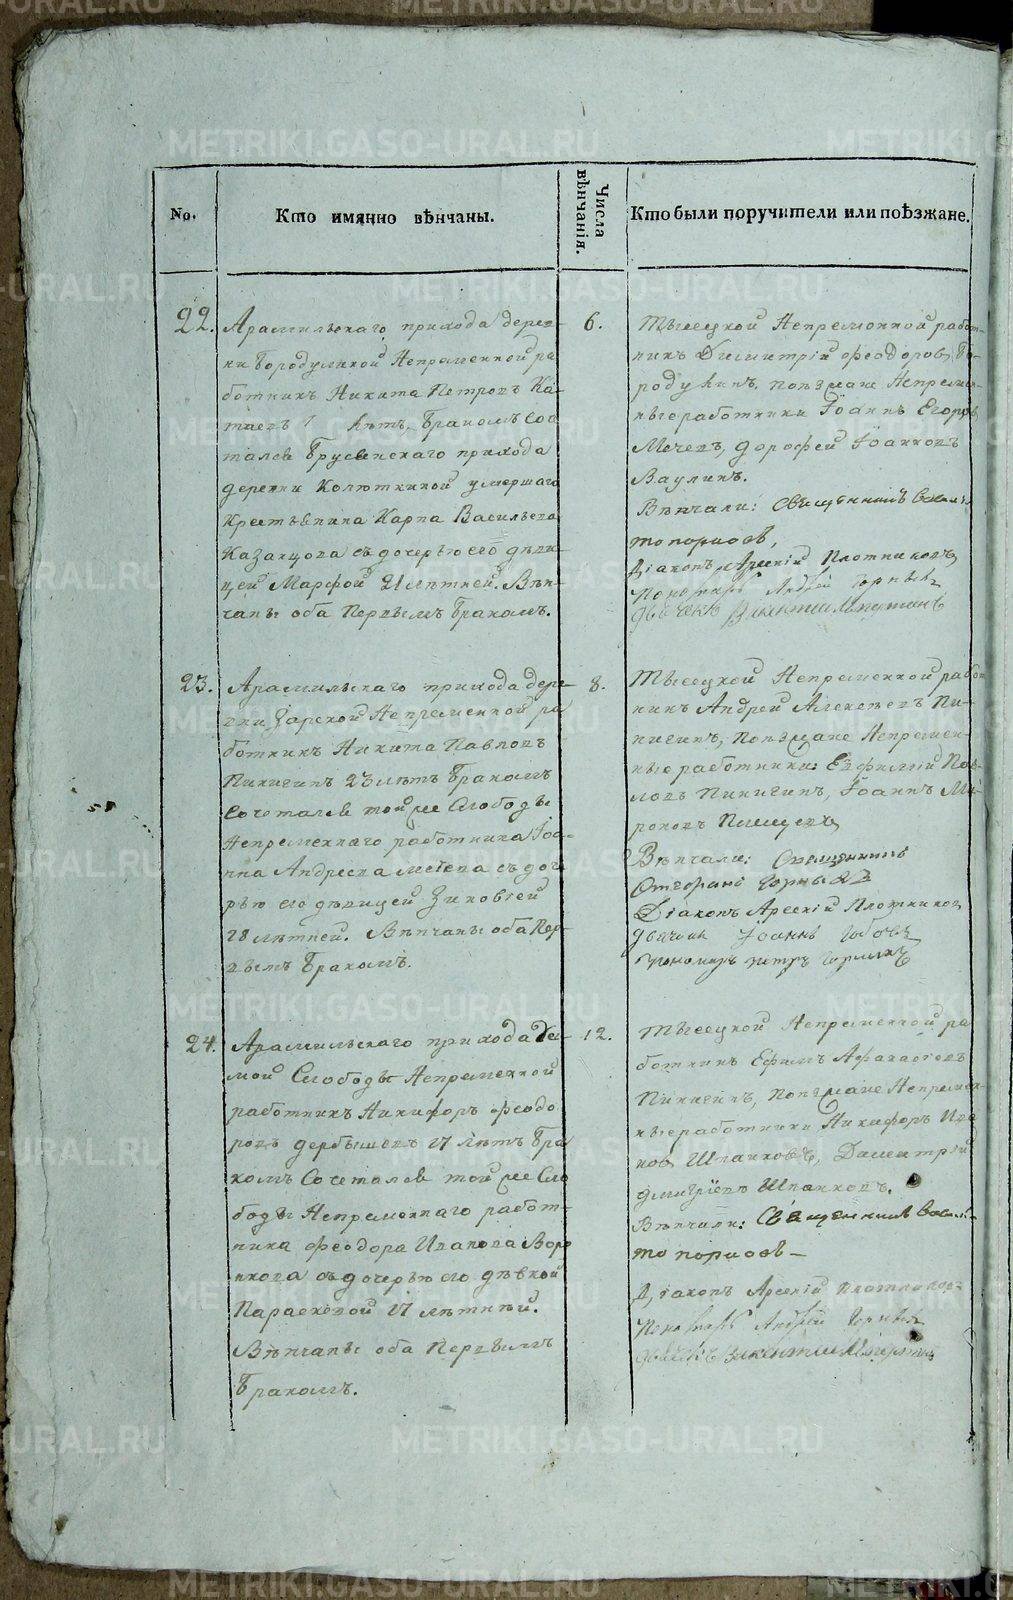 No.
Кто имянно вѣнчаны.
Числа вѣнчанія.
Кто были поручители или поѣзжане.
22.
Арамильскаго прихода дерев-
ни Бородулиной Непременной ра
ботникъ Никита Петровъ Ка-
таевъ лѣтъ, бракомъ соч
тался Брусенскаго прихода
деревни Колюткиной умершаго
крестьянина Карпа Васильева
Казанцова съ дочерью его дѣви-
цей Марфой 21 лѣтней. Вѣн-
чаны оба Первымъ бракомъ.
6.
Тысецкой Непременной работ-
никъ Димитрій Феодоровъ Бо-
родулинъ, поезжане Непремен-
ные работники Іоаннъ Егоровъ
Мечевъ, Дорофей Іоанновъ
Ваулинъ.
Вѣнчали: Священникъ
Топорковъ,
Діаконъ Арсеній Плотниковъ
Пономарь Андрей Горныхъ
дьячекъ
23.
Арамильскаго прихода дере-
вни Фарской Непременной ра
ботникъ Никита Павловъ
Пинигинъ 23 лѣтъ бракомъ
сочетался той же Слободы
Непременнаго работника Іоа-
нна Андреева съ доч
рью его дѣвицей Зиновіей
18 лѣтней. Вѣнчаны оба Пер-
вымъ бракомъ.
8.
Тысецкой Непременной работ
никъ Андрей Алексѣевъ Пи-
нигинъ, поезжане Непремен-
ные работники: Евфимій Пав-
ловъ Пинигинъ, Іоаннъ Ми-
роновъ
Вѣнчали: Священникъ
Горныхъ
Діаконъ Арсеній Плотников
Дьячекъ Іоаннъ
Пономарь Петръ Горныхъ
24.
Арамильскаго прихода
мой Слободы Непременной
работникъ Никифоръ Феодо
ровъ Дербышевъ 17 лѣтъ бра
комъ сочетался той же Сло
боды Непременнаго работ-
ника Феодора Иванова Воро
нкова съ дочерью его дѣвкой
Параскевой 17 лѣтней.
Вѣнчаны оба Первымъ
бракомъ.
12.
Тысецкой Непременной ра
ботникъ Ефимъ Афанасьевъ
Пинигинъ, поезжане Непремен-
ные работники Никифоръ Ива
новъ Шпанковъ, Димитрій
Дмитріевъ Шпанковъ.
Вѣнчали: Священникъ
Топорковъ
Діаконъ Арсеній Плотников
Пономарь Андрей Горныхъ
дьячекъ
METRIKI.GASO-URAL.RU